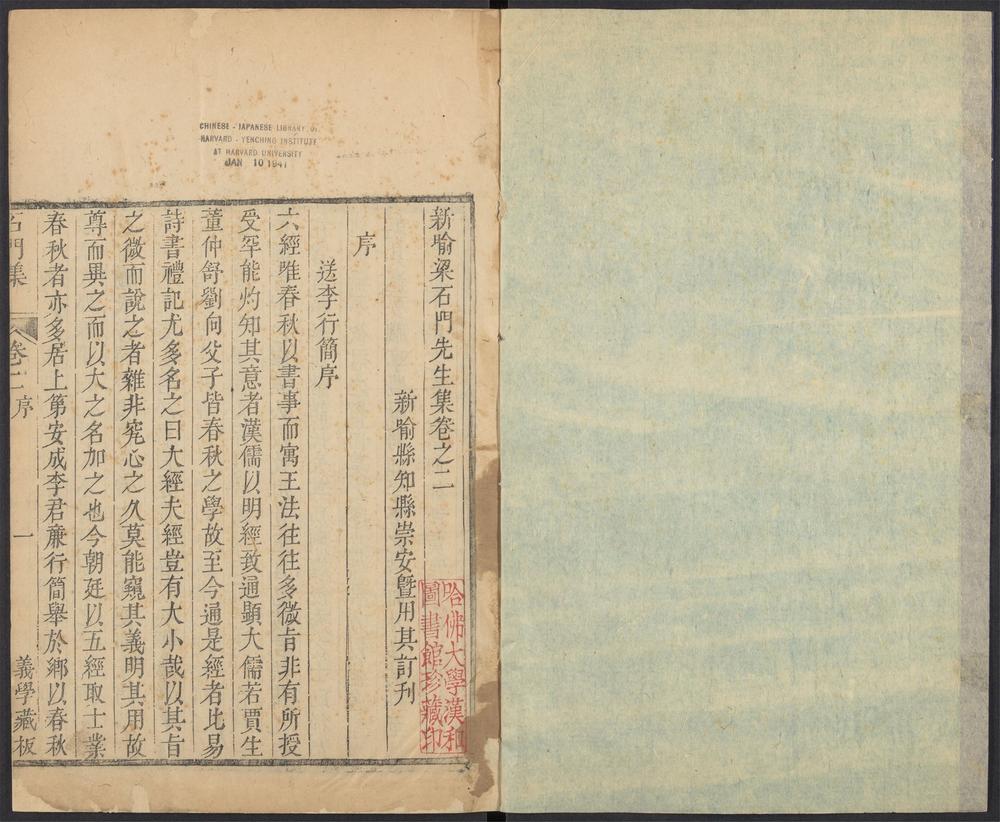 新喻梁石門先生集卷之二
新喻縣知縣崇安暨用其訂刊
序
送李行簡序
六經唯春秋以書事而寓王法往往多微旨非有所授
受罕能灼知其意者漢儒以明經致通顯大儒若賈生
董仲舒劉向父子皆春秋之學故至今通是經者比易
詩書禮記尤多名之曰大經夫經豈有大小哉以其旨
之微而說之者雜非究心之久莫能窺其義明其用故
尊而異之而以大之名加之也今朝廷以五經取士業
春秋者亦多居上第安成李君蕭行簡舉於鄉以春秋
石門集
卷二 序
一
義學藏板
哈佛大學漢和
圖書館珍藏印
CHINESE - JAPANESE LIBRARY OF
HARVARD - YENCHING INSTITUTE
AT HARVARD UNIVERSITY
JAN 10 1941